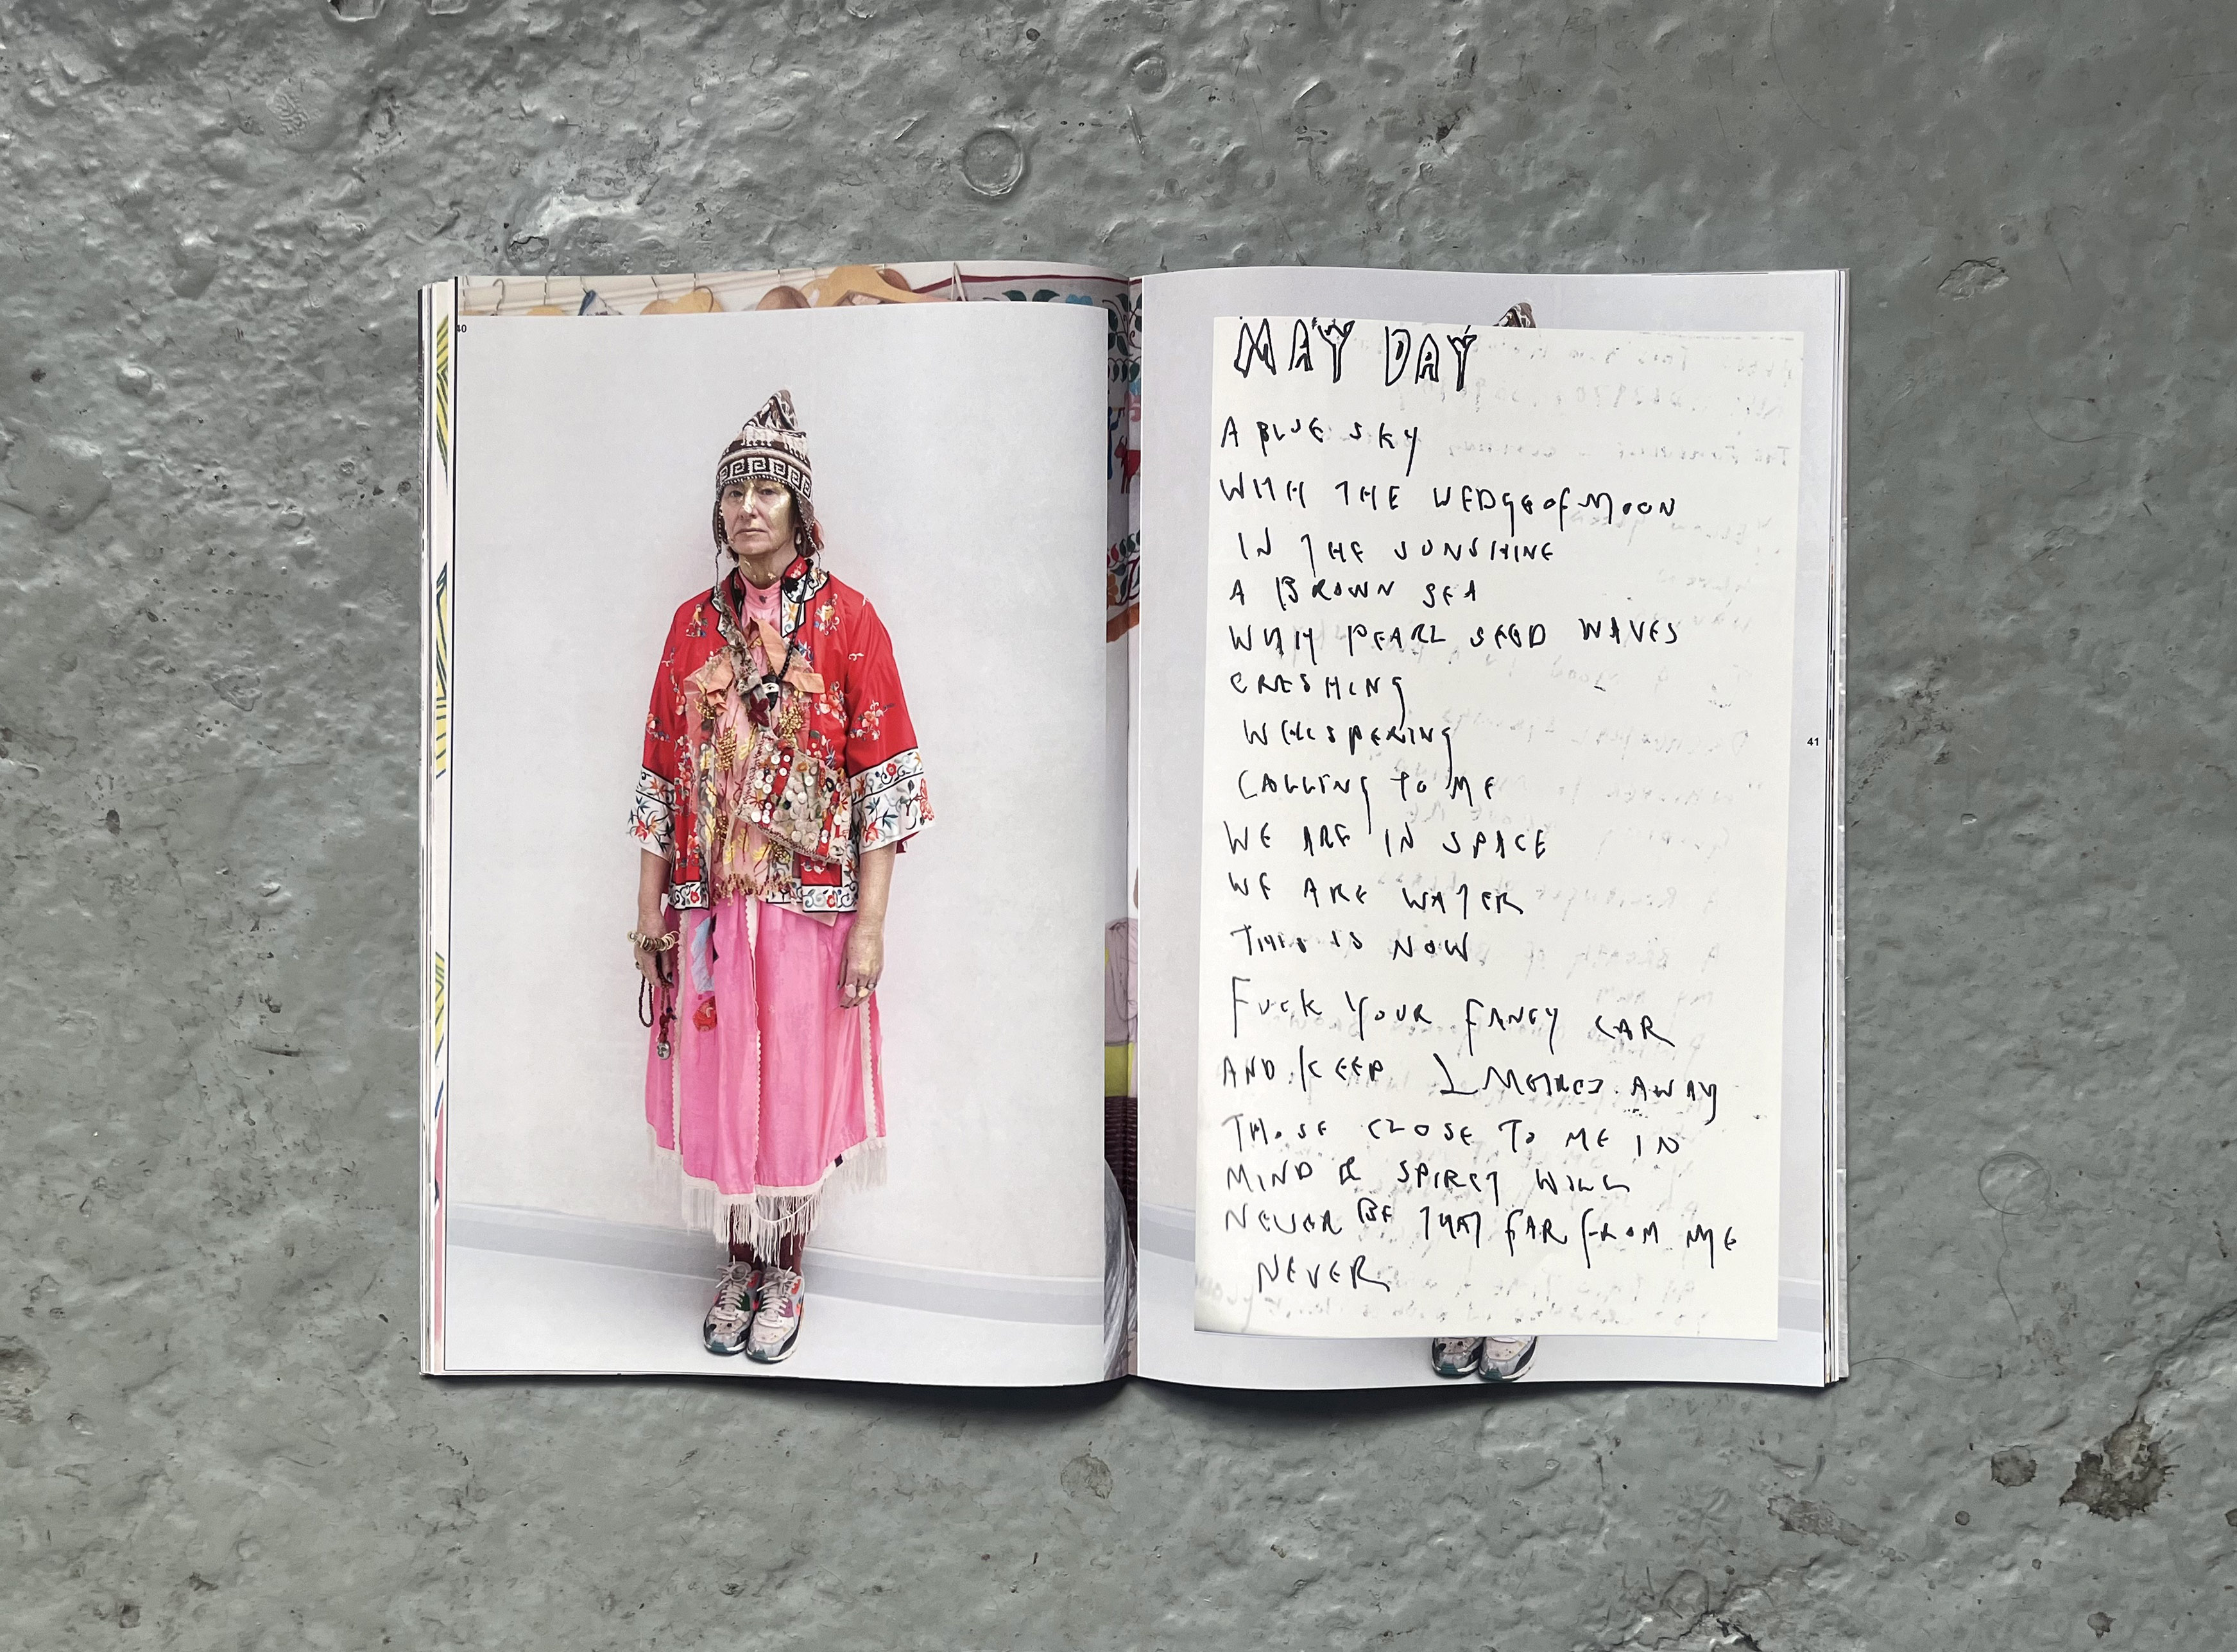 40
MAY DAY
A BLUE SKY
WITH THE WEDGE of MOON
IN THE SUNSHINE
A BROWN SEA
WITH PEARL SEED WAVES
CRESHING
WHISPERING
CALLING TO ME
WE ARE IN SPACE
WE ARE WATER
THIS IS NOW
FUCK YOUR FANCY CAR
AND KEEP 2 METRES AWAY
THOSE CLOSE TO ME IN
MIND & SPIRIT WILL
NEVER BE THAT FAR FROM ME
NEVER
41